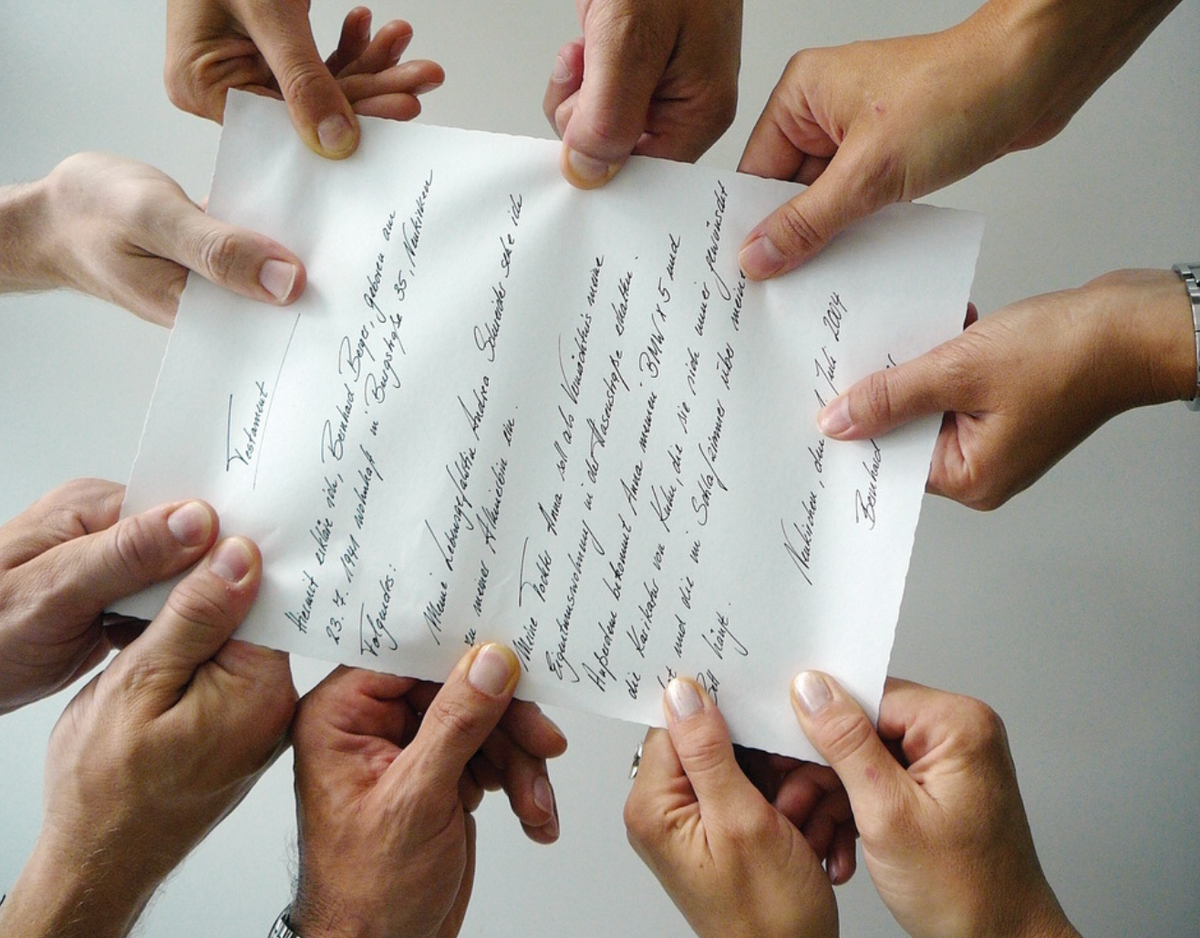 Testament
Hiermit erkläre ich, Bernhard Berger, geboren am
23.7.1941 wohnhaft in Burgstraße 35, Neukirchen
Folgendes:
Meine Lebensgefährtin Andrea Schneider setze ich
zu meiner Alleinerbin ein.
Meine Tochter Anna soll als Vermächtnis meine
Eigentumswohnung in der Hasenstraße erhalten.
Außerdem bekommt Anna meinen BMW X5 und
die Karikatur von Kuhn, die sie sich immer gewünscht
hat und die im Schlafzimmer über meinem
Bett hängt.
Neukirchen, den Juli 2004
Bernhard